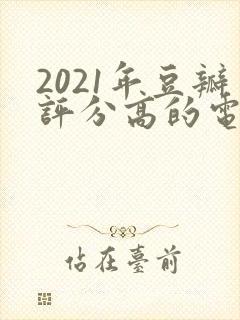 2021年豆瓣
評分高的電
佔在臺前